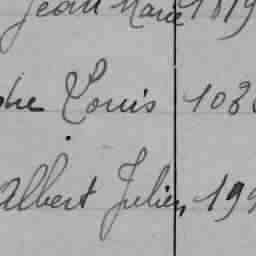 Jean Marie 1819
phe Louis 103
Albert Julien 199